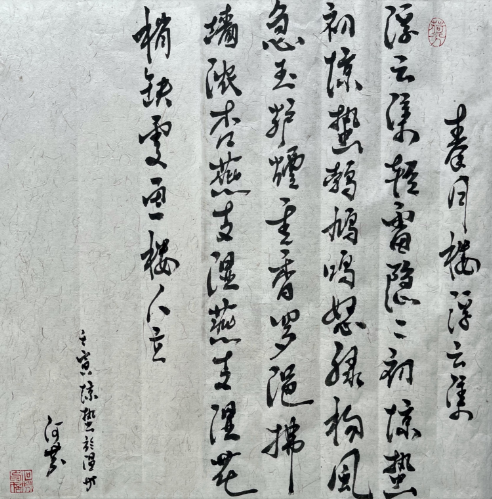 秦月楼浮云集
浮云集轻雷隐隐初惊蛰
初惊蛰鹁鸠鸣怒绿杨风
急玉炉煙重香罗浥拂
墙浓杏燕支湿燕支湿花
梢缺处画楼人立
壬寅惊蛰於温州